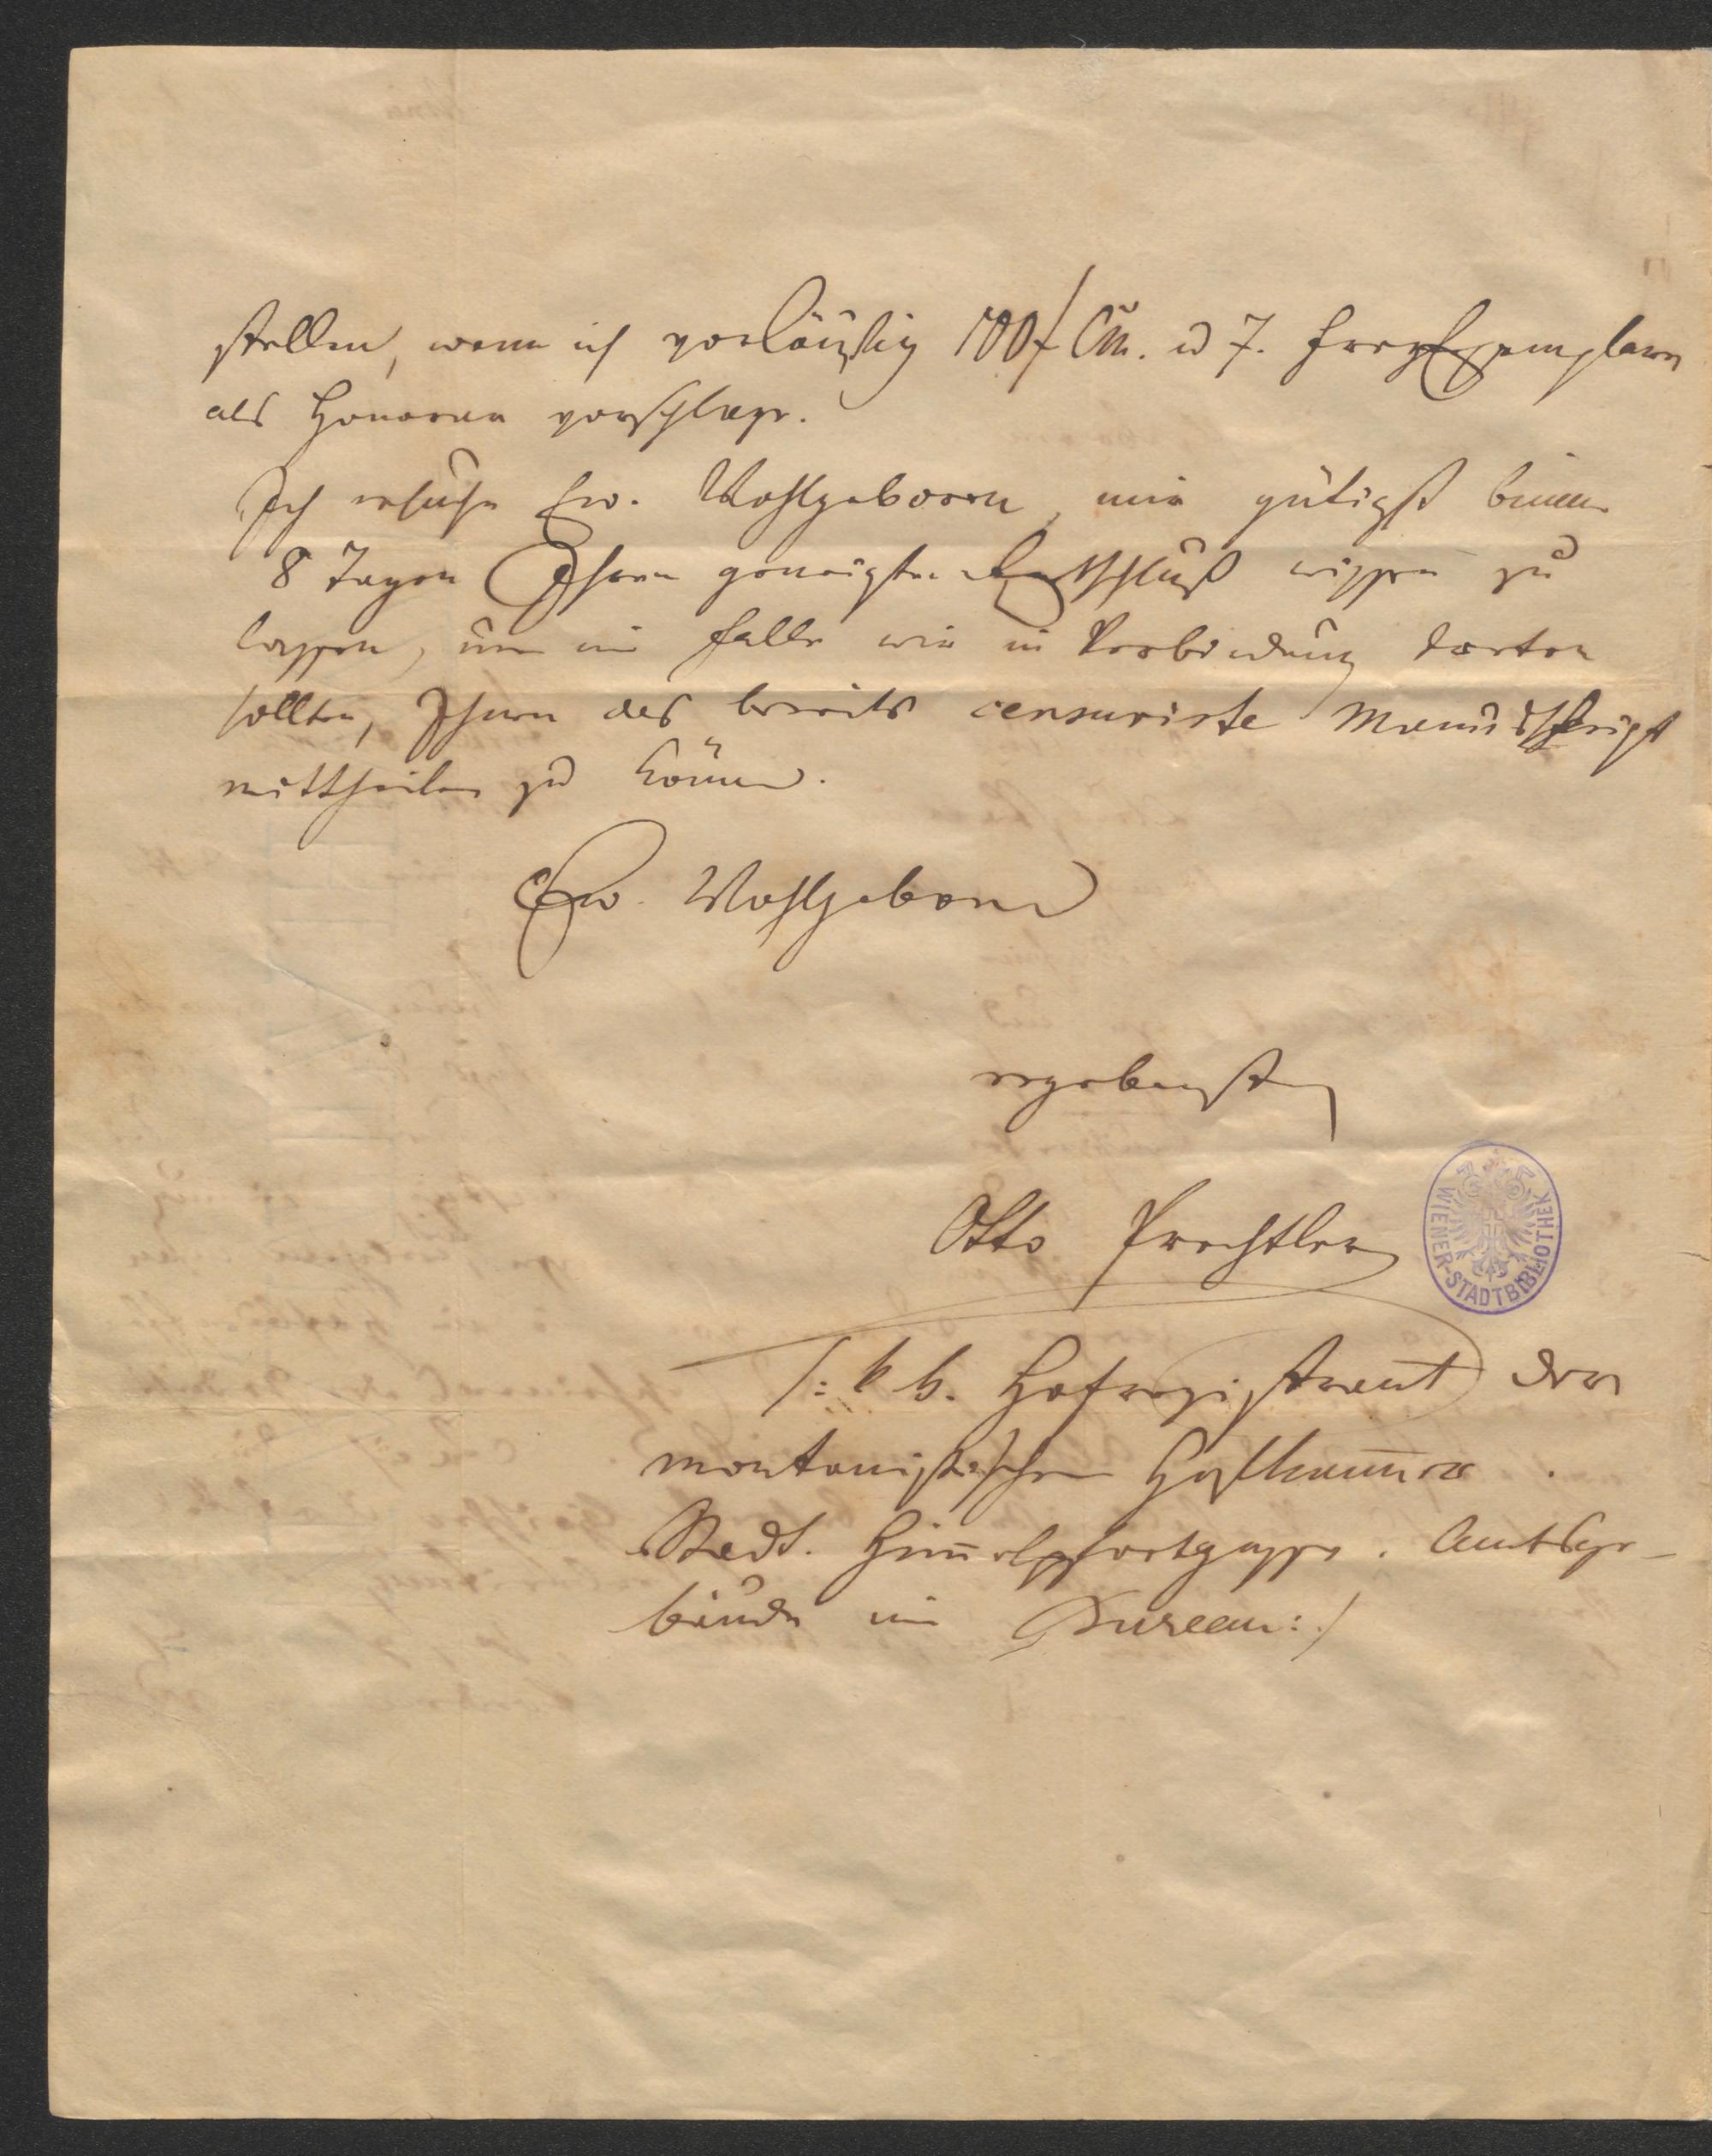 stellen, wenn ich vorläufig 100 f CM. u 7. Freyexemplare
als Honorar vorschlage.
Ich ersuche Ew. Wohlgeboren, mir gütigst binnen
8 Tagen Ihren geneigten Entschluß wissen zu
lassen, um im Falle wir in Verbindung treten
sollten, Ihnen das bereits censurirte Manuskript
mittheilen zu können.
Ew. Wohlgeboren
ergebenster
Otto Prechtler
WIENER-STADTBIBLIOTHEK
/: k k. Hofregistrant der
montanistischen Hofkam̅er.
Stadt. Him̅elpfortgasse. Amtsge-
bäude im Bureau :/